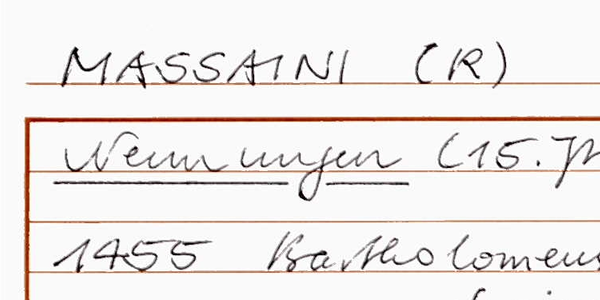 MASSAINI (R)
Nennungen (15. Jh
1455 Bartholomeus